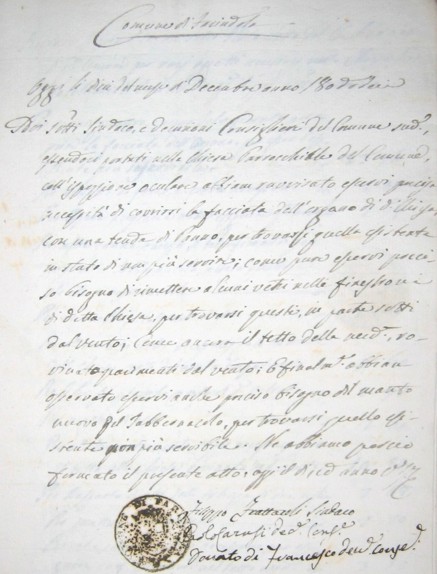 Comune di Farindola
Oggi li dieci del mese di Decembre anno 180
Noi sotti Sindaco, e decurioni Consiglieri del Comune sud.º
essendoci portati nella Chiesa Parrocchiale del Comune,
coll'ispezione oculare abbiamo ravvisato esservi precisa
necessità di covrirsi la facciata dell'organo di dª Chiesa
con una tenda di panno, per trovarsi quella esistente
in stato di non più servire, come pure esservi preci
so bisogno di rimettere alcuni vetri nelle finestre
di detta Chiesa, per trovarsi questi, in parte rotti
dal vento; Come ancora il tetto della med.ª, ro
vinato parimenti dal vento; E finalm.e abbiam
osservato esservi anche preciso bisogno del manto
nuovo del Tabbernacolo, per trovarsi quello esi
stente non più servibile. Ne abbiamo perciò
formato il presente atto, oggi il dì ed anno
Filippo Frattaroli Sindaco
dec.e Cons.e
Donato di Francesco dec.e Conse.e